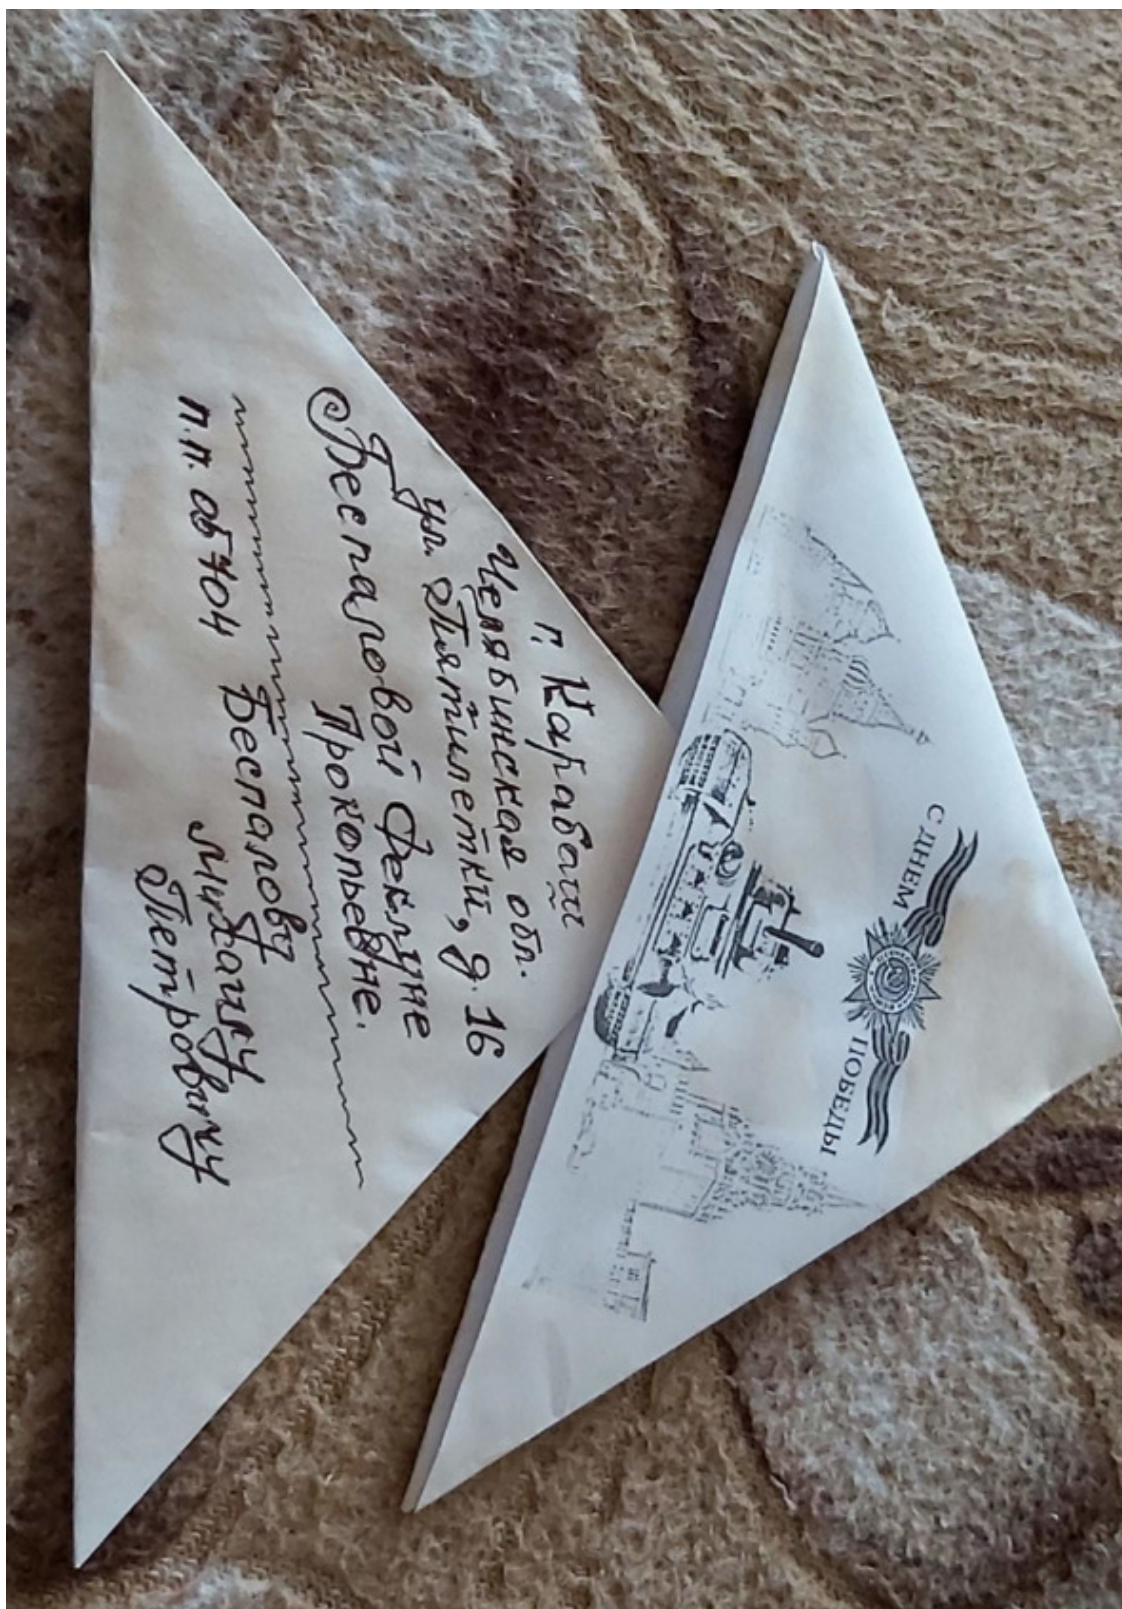 г. Карабаш
Челябинская обл.
ул. Пятилетки, д. 16
Беспаловой Феклуне
Прокопьевне.
п.п. 05704 Беспалову
Михаилу
Петровичу
С ДНЕМ ПОБЕДЫ